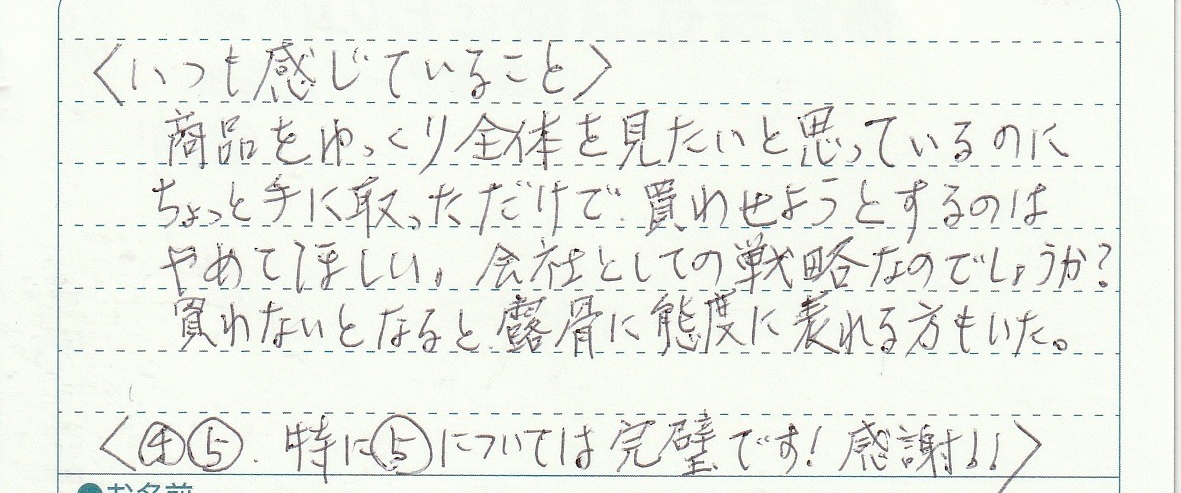 〈いつも感じていること〉
商品をゆっくり全体を見たいと思っているのに
ちょっと手に取っただけで、買わせようとするのは
やめてほしい。会社としての戦略なのでしょうか?
買わないとなると露骨に態度に表れる方もいた。
〈④⑤. 特に⑤については完璧です! 感謝!!〉
●お名前